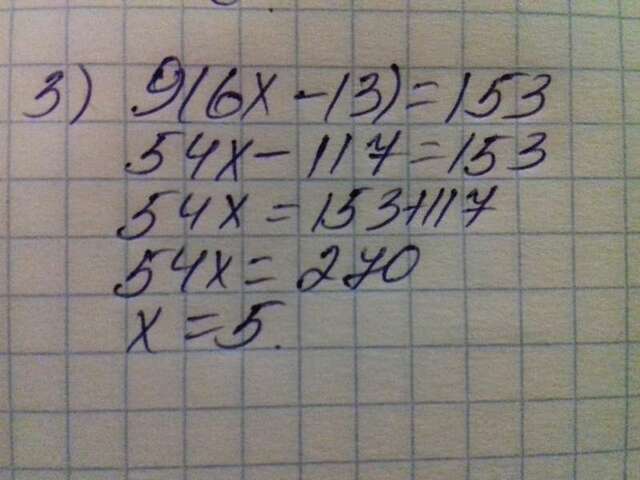 3) 9(6x - 13) = 153
54x - 117 = 153
54x = 153 + 117
54x = 270
x = 5.